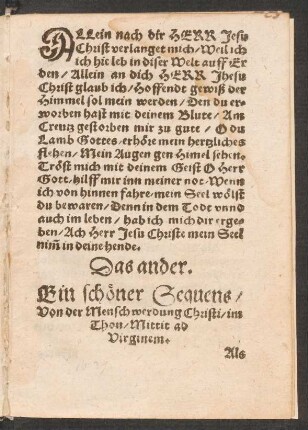 ALLein nach dir HERR Jesu
Christ verlanget mich / Weil ich
ich hie leb in diser Welt auff Er
den / Allein an dich HERR Jhesu
Christ glaub ich / Hoffendt gewiß der
Himmel sol mein werden / Den du er
worben hast mit deinem Blute / Am
Creuz gestorben mir zu gute / O du
Lamb Gottes / erhöre mein hertzliches
flehen / Mein Augen gen Himel sehen.
Tröst mich mit deinem Geist O Herr
Gott / hilff mir inn meiner not / Wenn
ich von hinnen fahre / mein Seel wölst
du bewaren / Denn in dem Tode vnnd
auch im leben / hab ich mich dir erge-
ben / Ach Herr Jesu Christe mein Seel
nim̃ in deine hende.
Das ander.
Ein schöner Sequens /
Von der Menschwerdung Christi / im
Thon / Mittit ad
Virginem.
Als